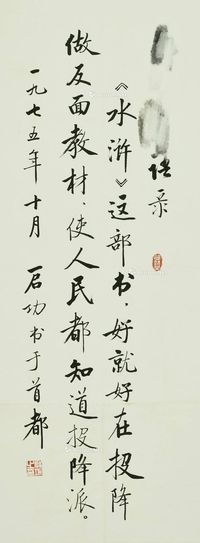 语录
《水浒》这部书，好就好在投降
做反面教材，使人民都知道投降派。
一九七五年十月 启功书于首都